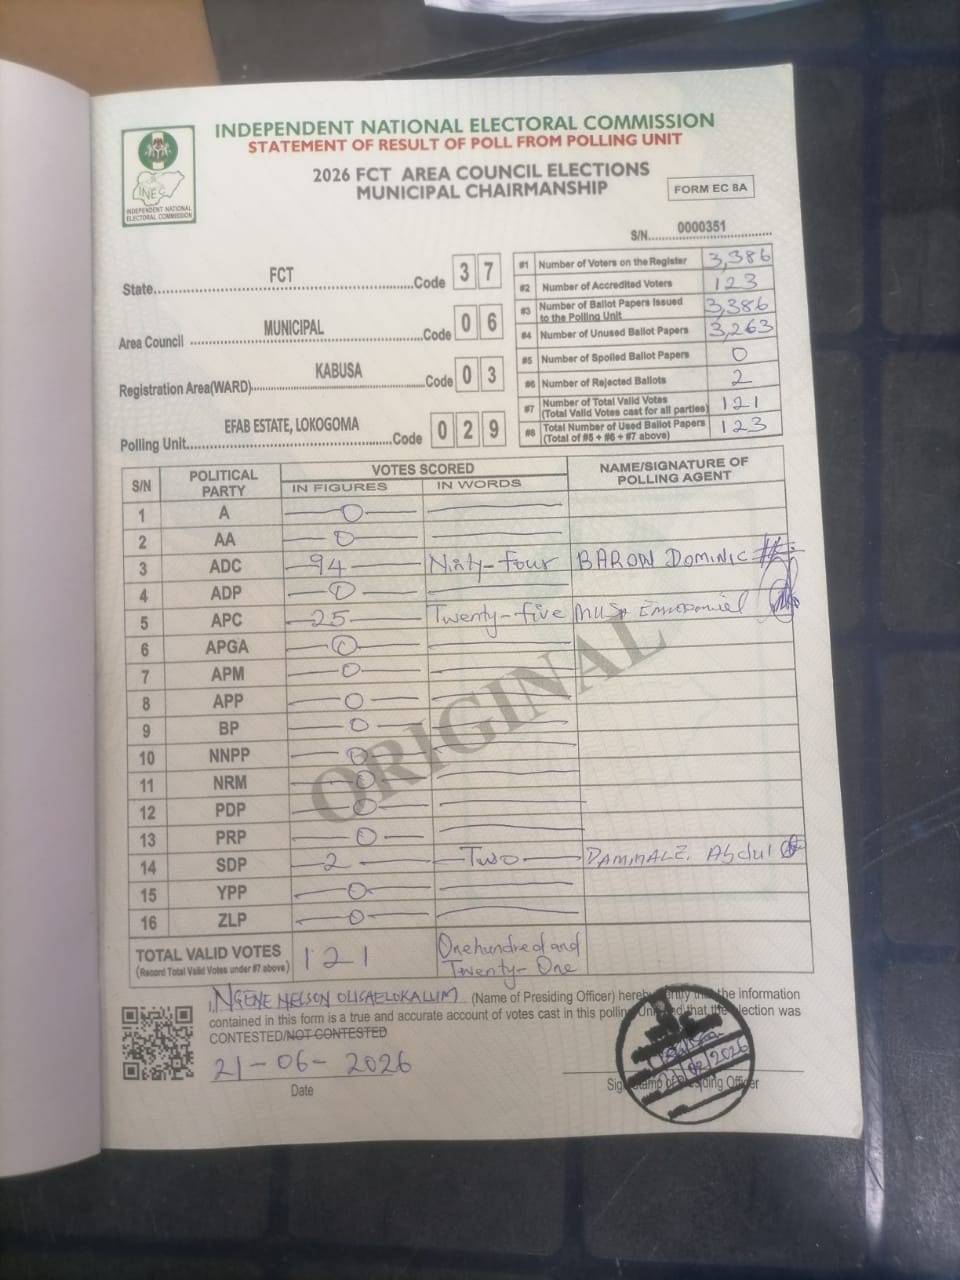 INDEPENDENT NATIONAL ELECTORAL COMMISSION
STATEMENT OF RESULT OF POLL FROM POLLING UNIT
2026 FCT AREA COUNCIL ELECTIONS
MUNICIPAL CHAIRMANSHIP
FORM EC 8A
INEC
INDEPENDENT NATIONAL
ELECTORAL COMMISSION
S/N 0000351
State FCT Code 3 7
Area Council MUNICIPAL Code 0 6
Registration Area(WARD) KABUSA Code 0 3
Polling Unit EFAB ESTATE, LOKOGOMA Code 0 2 9
#1 Number of Voters on the Register 3,386
#2 Number of Accredited Voters 123
#3 Number of Ballot Papers Issued to the Polling Unit 3,386
#4 Number of Unused Ballot Papers 3,263
#5 Number of Spoiled Ballot Papers 0
#6 Number of Rejected Ballots 2
#7 Number of Total Valid Votes (Total Valid Votes cast for all parties) 121
#8 Total Number of Used Ballot Papers (Total of #5 + #6 + #7 above) 123
S/N POLITICAL PARTY VOTES SCORED NAME/SIGNATURE OF POLLING AGENT
IN FIGURES IN WORDS
1 A 0
2 AA 0
3 ADC 94 Ninty-four BARON DOMINIC
4 ADP 0
5 APC 25 Twenty-five
6 APGA 0
7 APM 0
8 APP 0
9 BP 0
10 NNPP 0
11 NRM 0
12 PDP 0
13 PRP 0
14 SDP 2 Two Abdul
15 YPP 0
16 ZLP 0
TOTAL VALID VOTES 121 One hundred and
(Record Total Valid Votes under #7 above) Twenty-One
ORIGINAL
I, NGENE NELSON (Name of Presiding Officer) hereby certify that the information
contained in this form is a true and accurate account of votes cast in this polling Unit and that the election was
CONTESTED/NOT CONTESTED
21-06-2026
Date